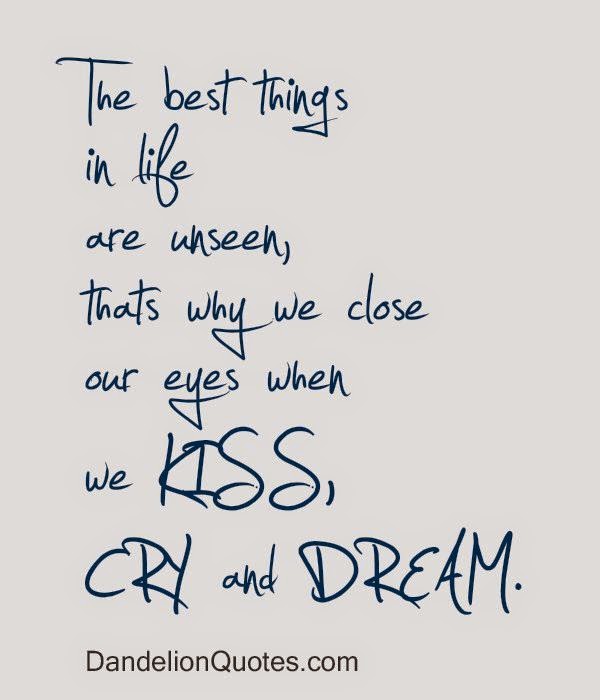 The best things
in life
are unseen,
thats why we close
our eyes when
we KISS,
CRY and DREAM.
DandelionQuotes.com